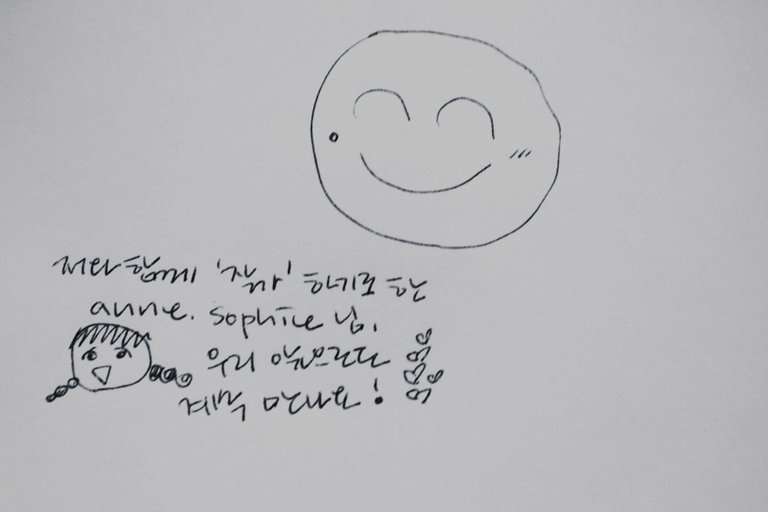 저라 함께 '작가' 하기로 한
anne. sophie 님.
우리 앞으로도
계속 만나요!